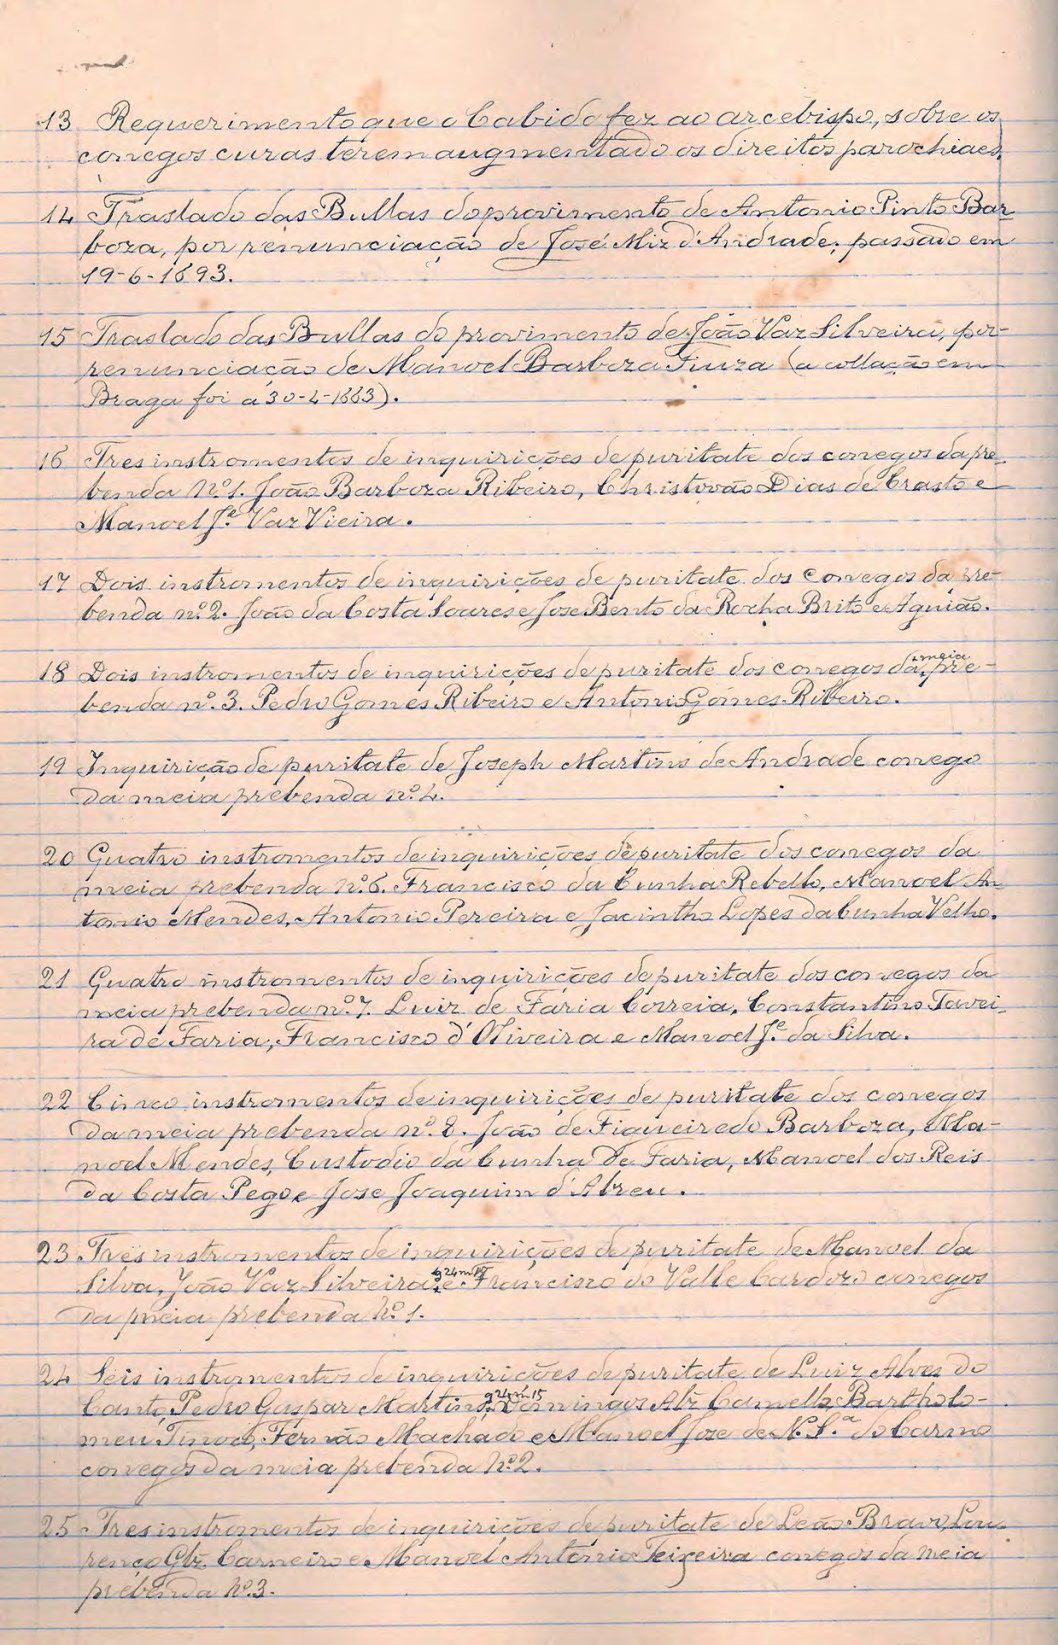 13 Requerimento que o Cabido fez ao arcebispo, sobre os
conegos curas terem augmentado os direitos parochiaes.
14 Traslado das Bullas do provimento de Antonio Pinto Bar-
boza, por renunciação de José Miz d'Andrade, passado em
19-6-1693.
15 Traslado das Bullas do provimento de João Vaz Silveira, por
renunciação de Manoel Barboza Fiuza (a collação em
Braga foi a 30-4-1663).
16 Tres instromentos de inquirições de puritate dos conegos da pre-
benda Nº 1. João Barboza Ribeiro, Christovão Dias de Crasto e
Manoel Jº Vaz Vieira.
17 Dois instromentos de inquirições de puritate dos conegos da pre-
benda nº 2. João da Costa Soares e Jose Bento da Rocha Brito e Aguião.
18 Dois instromentos de inquirições de puritate dos conegos da meia pre-
benda nº 3. Pedro Gomes Ribeiro e Antonio Gomes Ribeiro.
19 Inquirição de puritate de Joseph Martins de Andrade conego
da meia prebenda nº 4.
20 Quatro instromentos de inquirições de puritate dos conegos da
meia prebenda nº 6. Francisco da Cunha Rebello, Manoel An-
tonio Mendes, Antonio Pereira e Jacintho Lopes da Cunha Velho.
21 Quatro instromentos de inquirições de puritate dos conegos da
meia prebenda nº 7. Luiz de Faria Correia, Constantino Tavei-
ra de Faria, Francisco d'Oliveira e Manoel Jº da Silva.
22 Cinco instromentos de inquirições de puritate dos conegos
da meia prebenda nº 8. João de Figueiredo Barboza, Ma-
noel Mendes, Custodio da Cunha de Faria, Manoel dos Reis
da Costa Pego, e Jose Joaquim d'Abreu.
23 Tres instromentos de inquirições de puritate de Manoel da
Silva, João Vaz Silveira e Francisco do Valle Cardozo conegos
da meia prebenda Nº 1.
24 Seis instromentos de inquirições de puritate de Luiz Alves do
Canto, Pedro Gaspar Martins, Domingos Alz Camello, Bartholo-
meu Tinoco, Fernão Machado e Manoel Jose de N. Sª do Carmo
conegos da meia prebenda Nº 2.
25 Tres instromentos de inquirições de puritate de Leão Bravo, Lou-
renço Glz Carneiro e Manoel Antonio Teixeira conegos da meia
prebenda Nº 3.